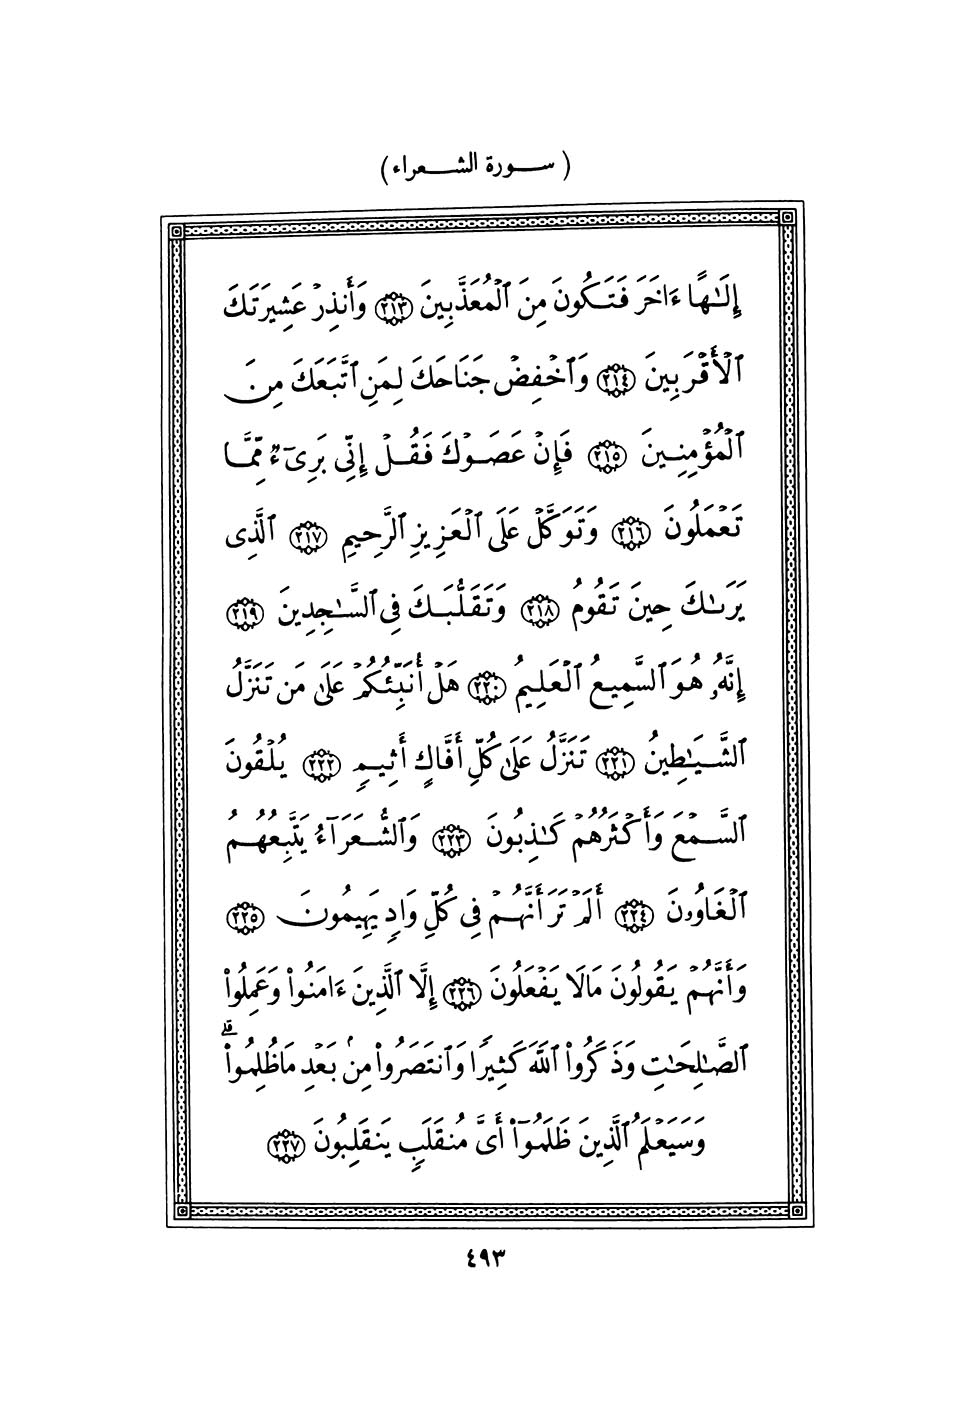 ( ســورة الشــعراء )
إِلَـٰهًا ءَاخَرَ فَتَكُونَ مِنَ ٱلْمُعَذَّبِينَ ٢١٣ وَأَنذِرْ عَشِيرَتَكَ
ٱلْأَقْرَبِينَ ٢١٤ وَٱخْفِضْ جَنَاحَكَ لِمَنِ ٱتَّبَعَكَ مِنَ
ٱلْمُؤْمِنِينَ ٢١٥ فَإِنْ عَصَوْكَ فَقُلْ إِنِّى بَرِىٓءٌ مِّمَّا
تَعْمَلُونَ ٢١٦ وَتَوَكَّلْ عَلَى ٱلْعَزِيزِ ٱلرَّحِيمِ ٢١٧ ٱلَّذِى
يَرَىٰكَ حِينَ تَقُومُ ٢١٨ وَتَقَلُّبَكَ فِى ٱلسَّـٰجِدِينَ ٢١٩
إِنَّهُۥ هُوَ ٱلسَّمِيعُ ٱلْعَلِيمُ ٢٢٠ هَلْ أُنَبِّئُكُمْ عَلَىٰ مَن تَنَزَّلُ
ٱلشَّيَـٰطِينُ ٢٢١ تَنَزَّلُ عَلَىٰ كُلِّ أَفَّاكٍ أَثِيمٍ ٢٢٢ يُلْقُونَ
ٱلسَّمْعَ وَأَكْثَرُهُمْ كَـٰذِبُونَ ٢٢٣ وَٱلشُّعَرَآءُ يَتَّبِعُهُمُ
ٱلْغَاوُۥنَ ٢٢٤ أَلَمْ تَرَ أَنَّهُمْ فِى كُلِّ وَادٍ يَهِيمُونَ ٢٢٥
وَأَنَّهُمْ يَقُولُونَ مَالَا يَفْعَلُونَ ٢٢٦ إِلَّا ٱلَّذِينَ ءَامَنُوا۟ وَعَمِلُوا۟
ٱلصَّـٰلِحَـٰتِ وَذَكَرُوا۟ ٱللَّهَ كَثِيرًا وَٱنتَصَرُوا۟ مِنۢ بَعْدِ مَاظُلِمُوا۟ ۗ
وَسَيَعْلَمُ ٱلَّذِينَ ظَلَمُوٓا۟ أَىَّ مُنقَلَبٍ يَنقَلِبُونَ ٢٢٧
٤٩٣